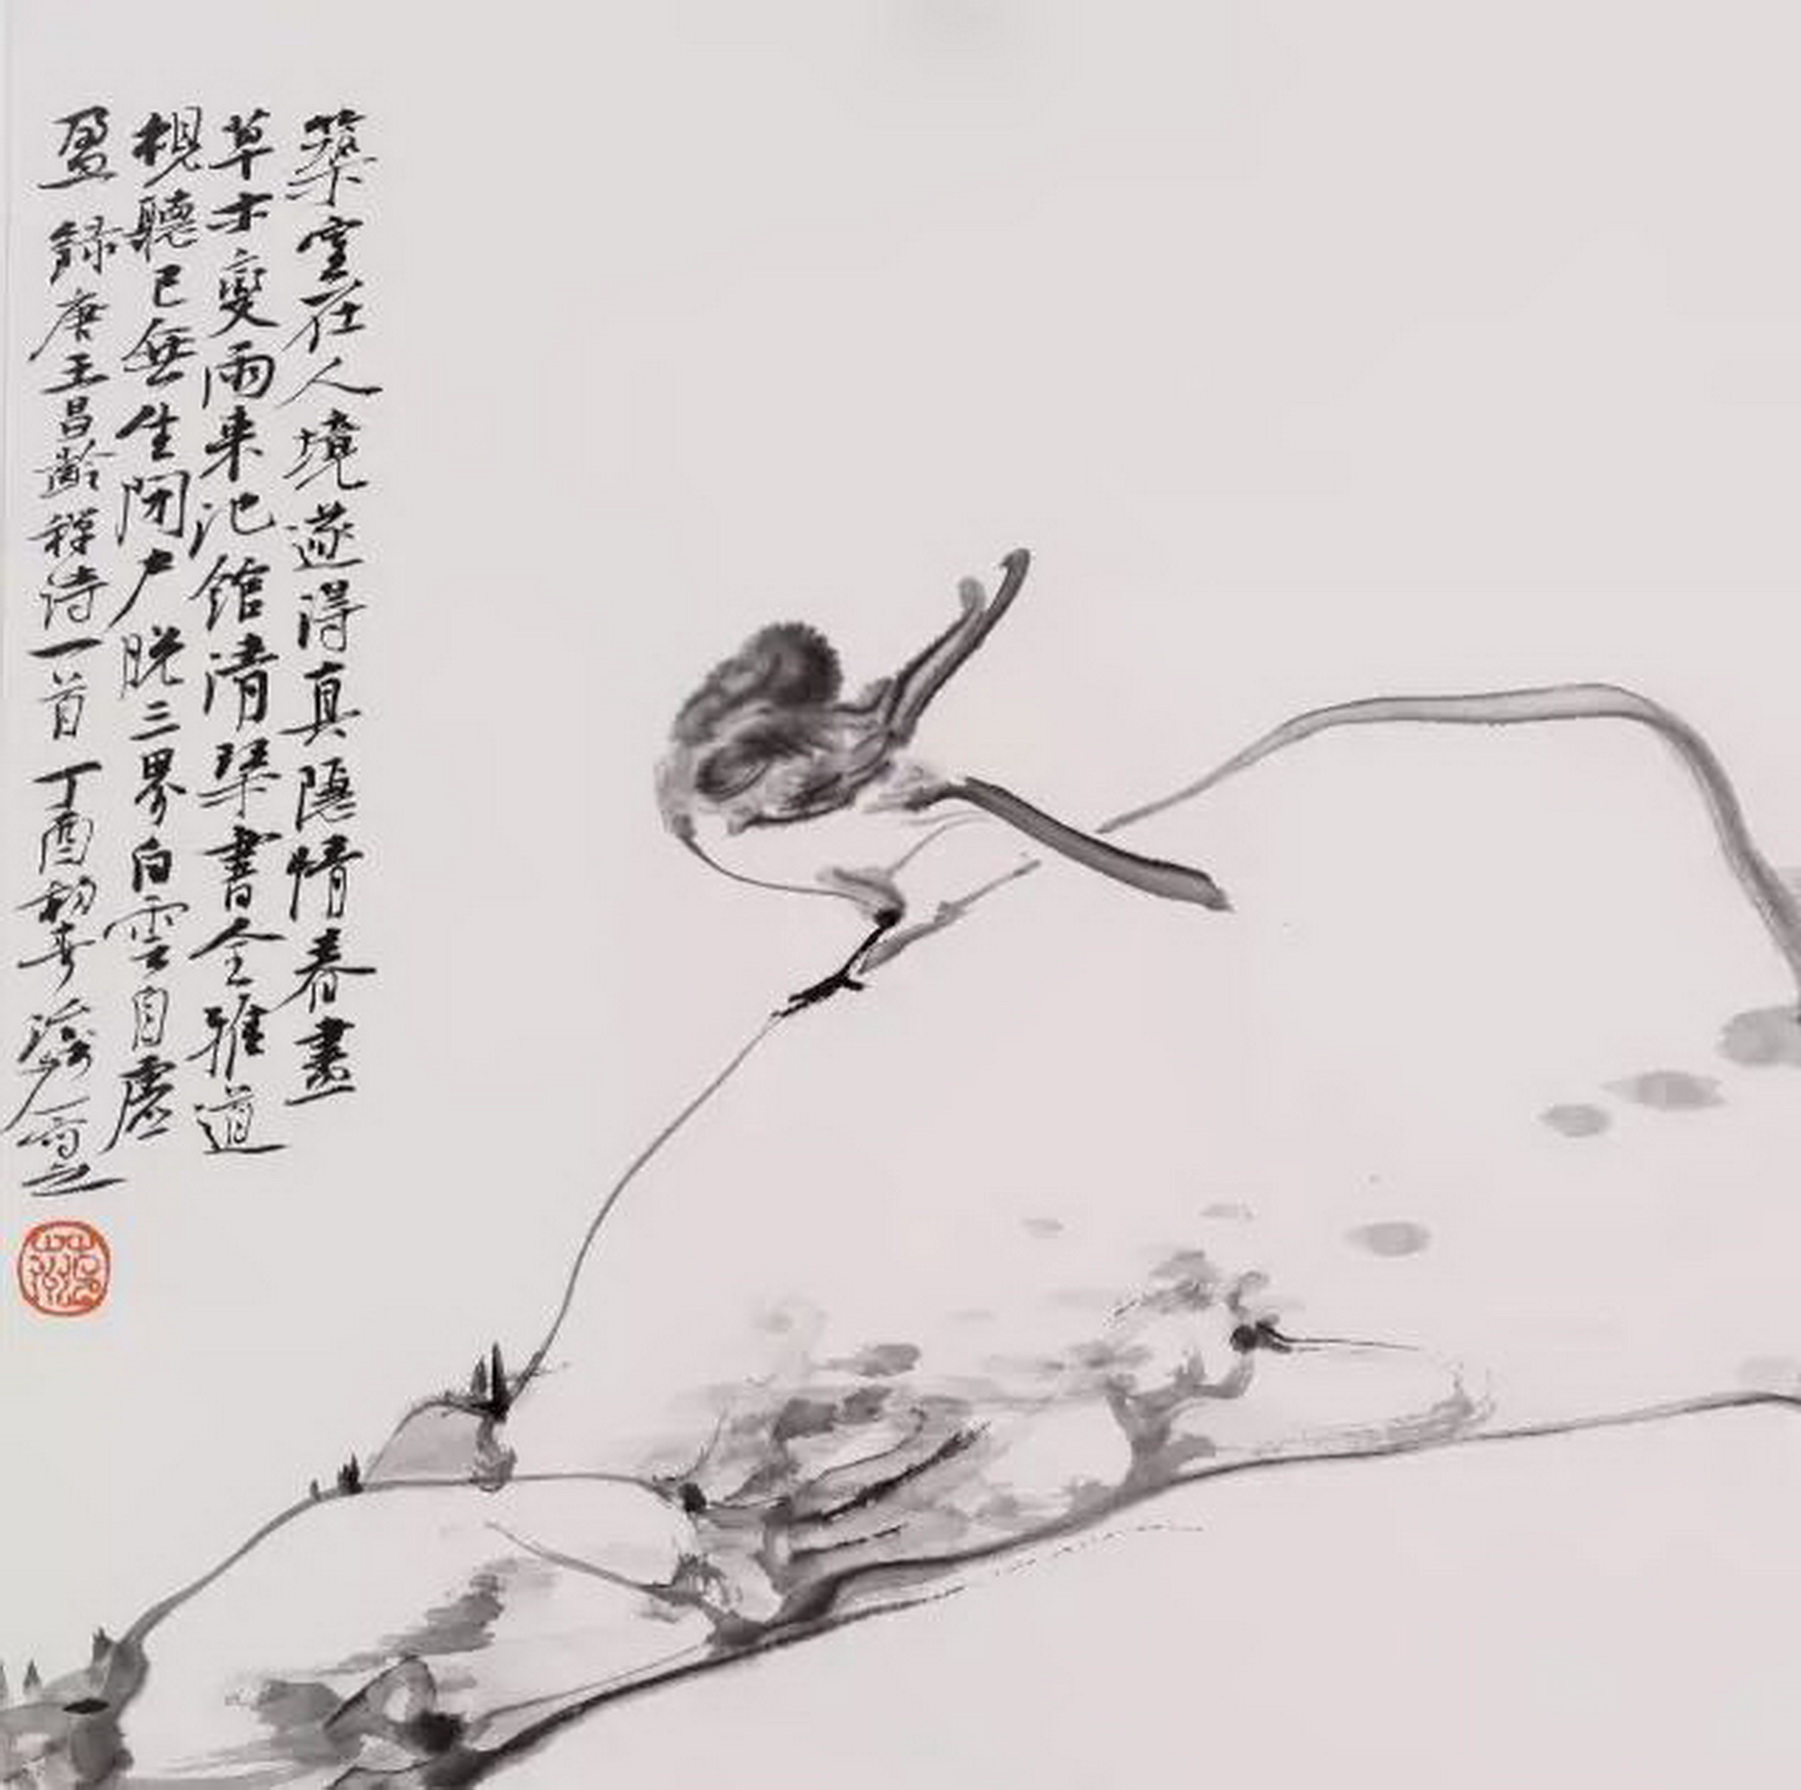 築室在人境遂得真隱情春盡
草木變雨来池館清琴書全雅道
視聽已無生閉户脱三界白雲自虚
盈録唐王昌齡禪诗一首丁酉初春